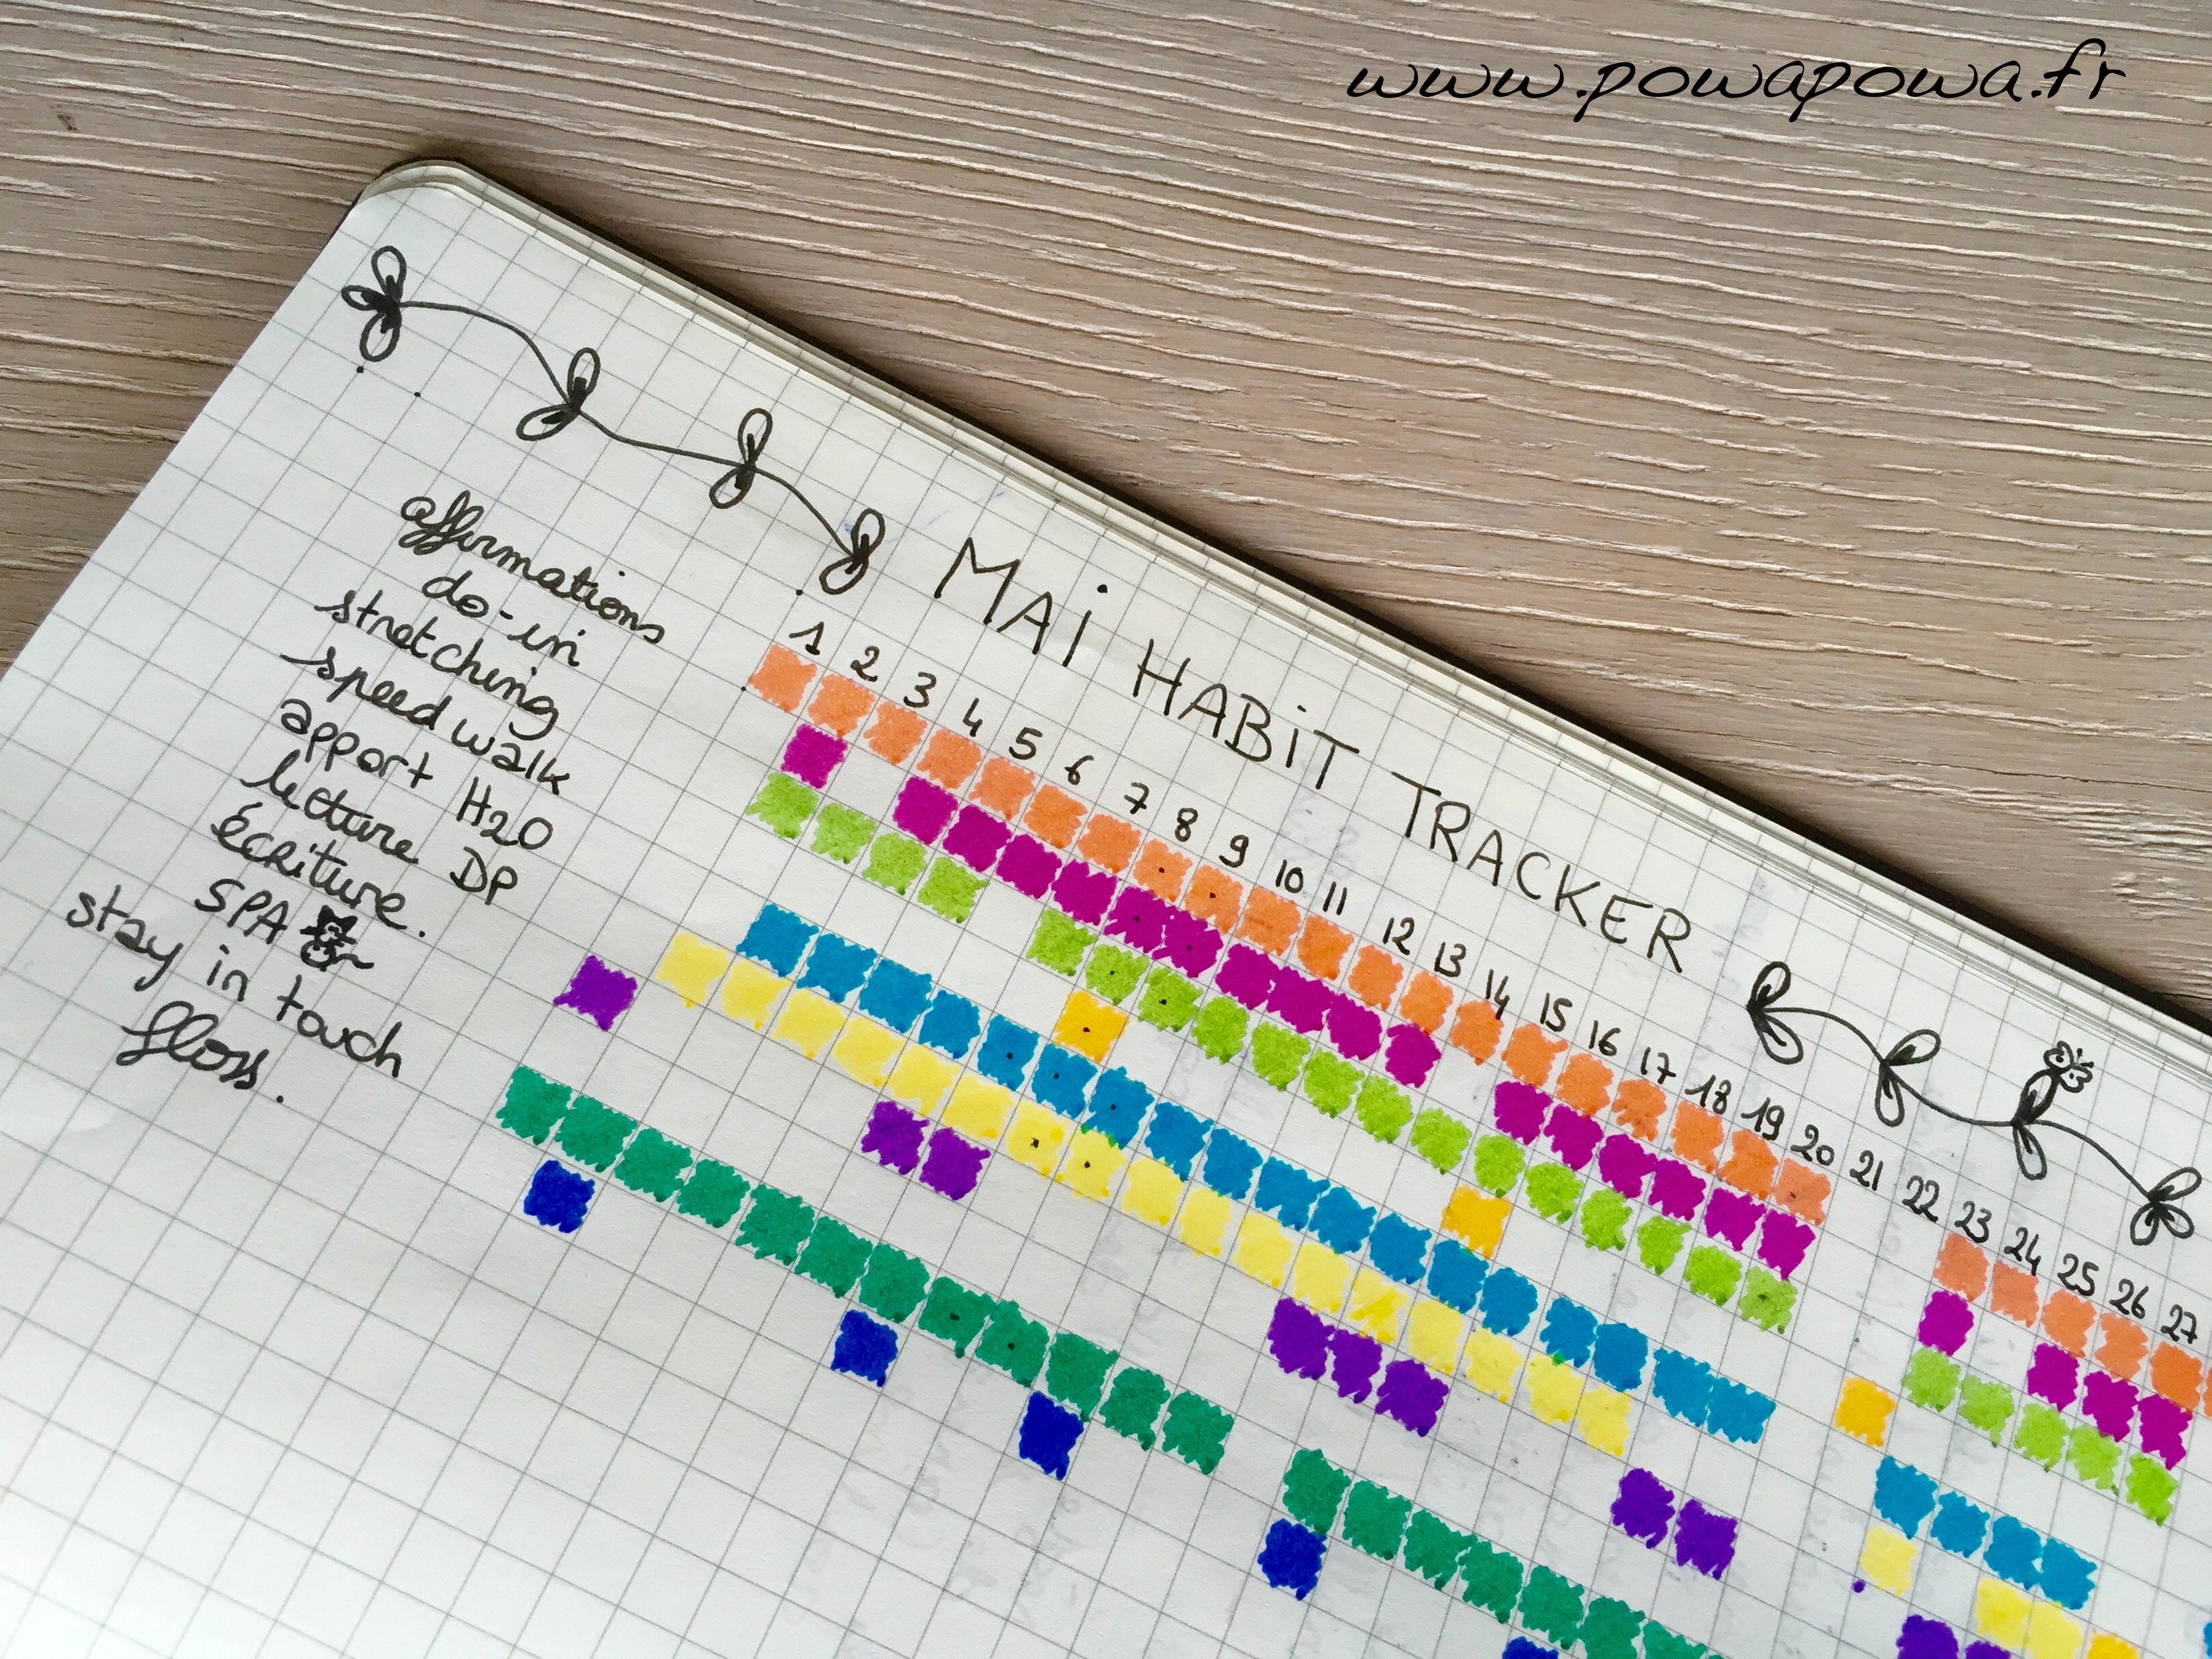 www.powapowa.fr
MAi HABiT TRACKER
1 2 3 4 5 6 7 8 9 10 11 12 13 14 15 16 17 18 19 20 21 22 23 24 25 26 27
affirmations
do-in
stretching
speed walk
apport H2O
lecture DP
écriture.
SPA
stay in touch
floss.